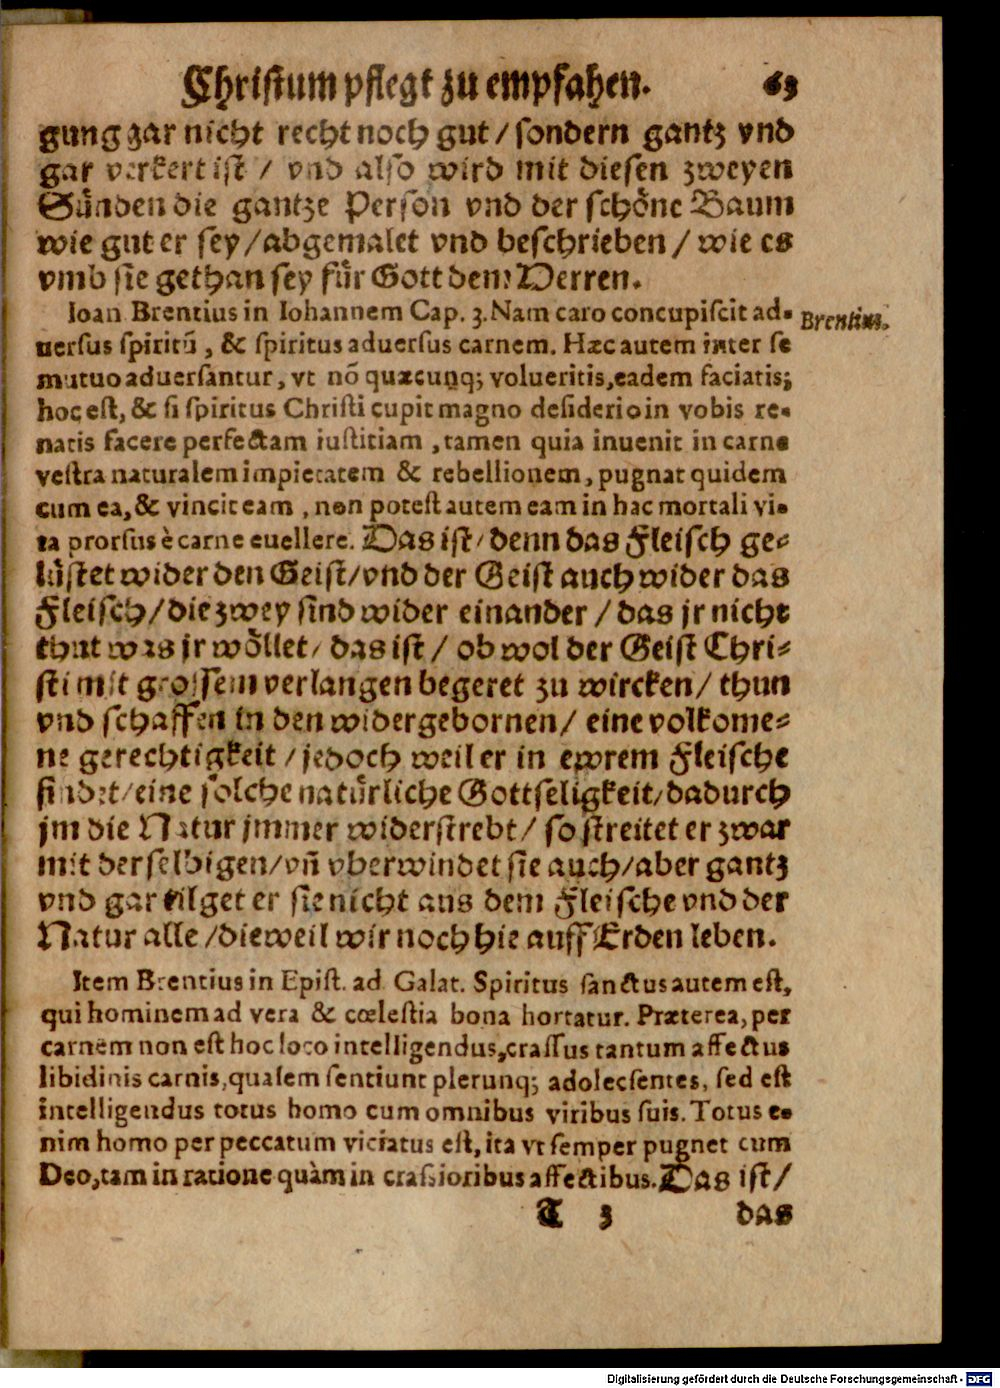 Christum pflegt zu empfahen. 63
gung gar nicht recht noch gut / sondern gantz vnd
gar verkert ist / vnd also wird mit diesen zweyen
Sünden die gantze Person vnd der schöne Baum
wie gut er sey / abgemalet vnd beschrieben / wie es
vmb sie gethan sey für Gott dem HErren.
Ioan Brentius in Iohannem Cap. 3. Nam caro concupiscit ad-
Brentius.
uersus spiritū, & spiritus aduersus carnem. Hæc autem inter se
mutuo aduersantur, vt nō quæcunq; volueritis, eadem faciatis;
hoc est, & si spiritus Christi cupit magno desiderio in vobis re-
natis facere perfectam iustitiam, tamen quia inuenit in carne
vestra naturalem impietatem & rebellionem, pugnat quidem
cum ea, & vincit eam, non potest autem eam in hac mortali vi-
ta prorsus è carne euellere. Das ist / denn das Fleisch ge-
lüstet wider den Geist / vnd der Geist auch wider das
Fleisch / die zwey sind wider einander / das jr nicht
thut was jr wöllet / das ist / ob wol der Geist Chri-
sti mit grossem verlangen begeret zu wircken / thun
vnd schaffen in den widergebornen / eine volkome-
ne gerechtigkeit / jedoch weil er in ewrem Fleische
findet / eine solche natürliche Gottseligkeit / dadurch
jm die Natur jmmer widerstrebt / so streitet er zwar
mit derselbigen / vñ vberwindet sie auch / aber gantz
vnd gar tilget er sie nicht aus dem Fleische vnd der
Natur alle / dieweil wir noch hie auff Erden leben.
Item Brentius in Epist. ad Galat. Spiritus sanctus autem est,
qui hominem ad vera & cœlestia bona hortatur. Præterea, per
carnem non est hoc loco intelligendus, crassus tantum affectus
libidinis carnis, qualem sentiunt plerunq; adolecsentes, sed est
intelligendus totus homo cum omnibus viribus suis. Totus e-
nim homo per peccatum viciatus est, ita vt semper pugnet cum
Deo, tam in ratione quàm in crassioribus affectibus. Das ist /
T 3 das
Digitalisierung gefördert durch die Deutsche Forschungsgemeinschaft - DFG